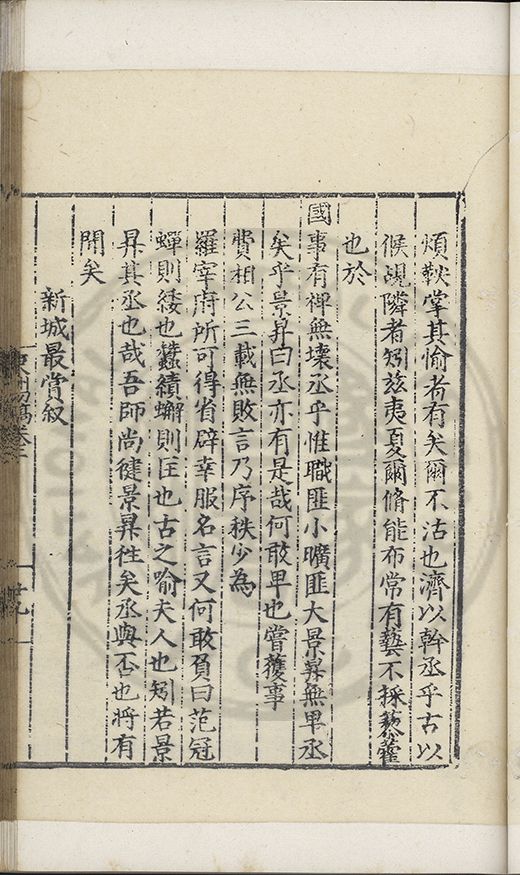 煩鞅掌其愉者有矣爾不沽也濟以幹丞乎古以
候覘隣者矧茲夷夏爾脩能布常有藝不採藜藿
也於
國事有裨無壞丞乎惟職匪小曠匪大景昇無卑丞
矣乎景昇曰丞亦有是哉何敢卑也嘗獲事
費相公三載無敗言乃序秩少為
羅宰府所可得省辟幸服名言又何敢負曰范冠
蟬則緌也蠶績蠏則匡也古之喻夫人也矧若景
昇其丞也哉吾師尚健景昇往矣丞與否也將有
聞矣
新城最賞叙
東洲初稿卷三
廿九